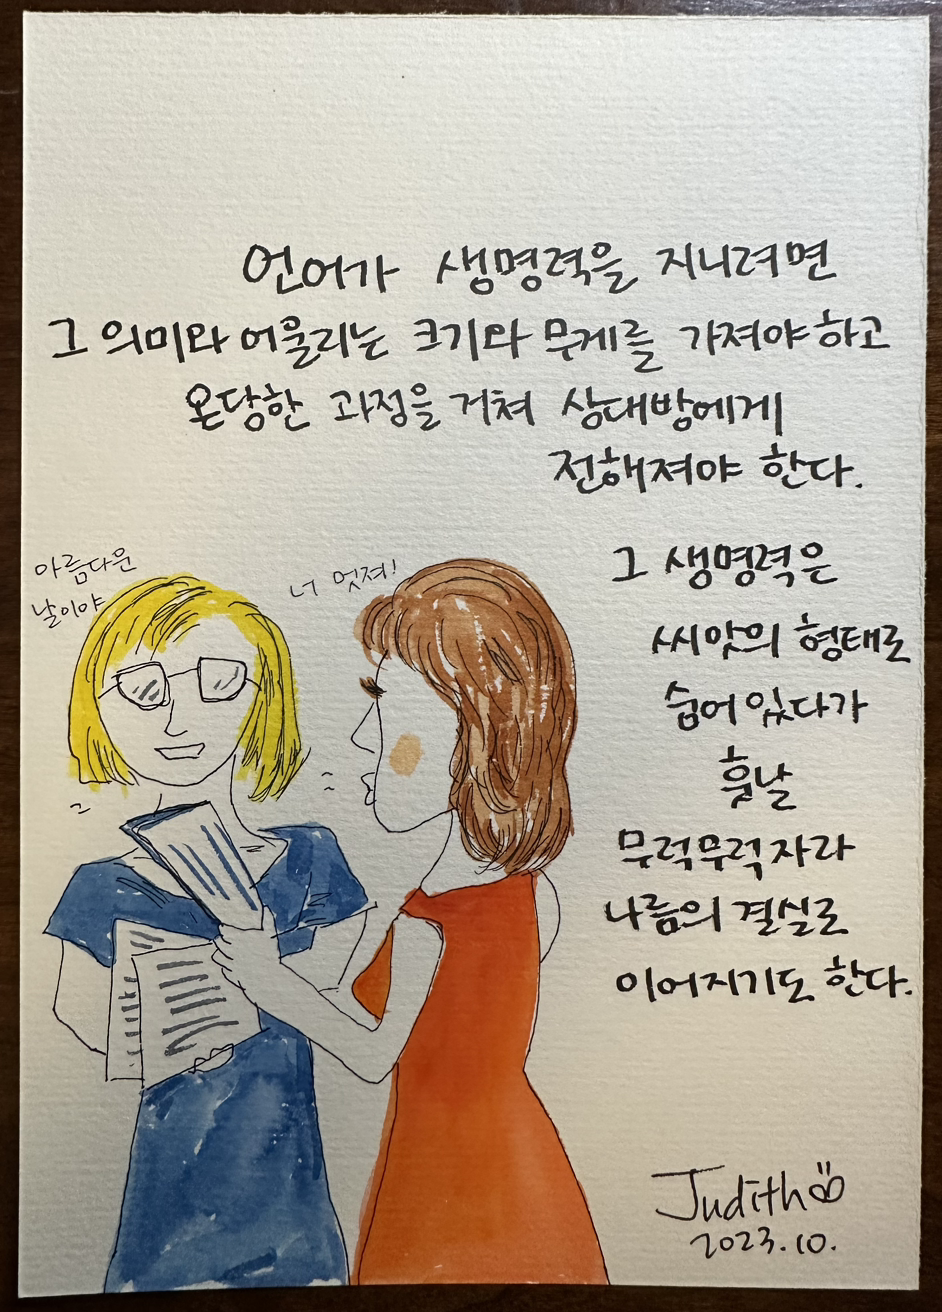 언어가 생명력을 지니려면
그 의미와 어울리는 크기와 무게를 가져야 하고
온당한 과정을 거쳐 상대방에게
전해져야 한다.
아름다운
날이야
너 멋져!
그 생명력은
씨앗의 형태로
숨어 있다가
훗날
무럭무럭 자라
나름의 결실로
이어지기도 한다.
Judith
2023.10.